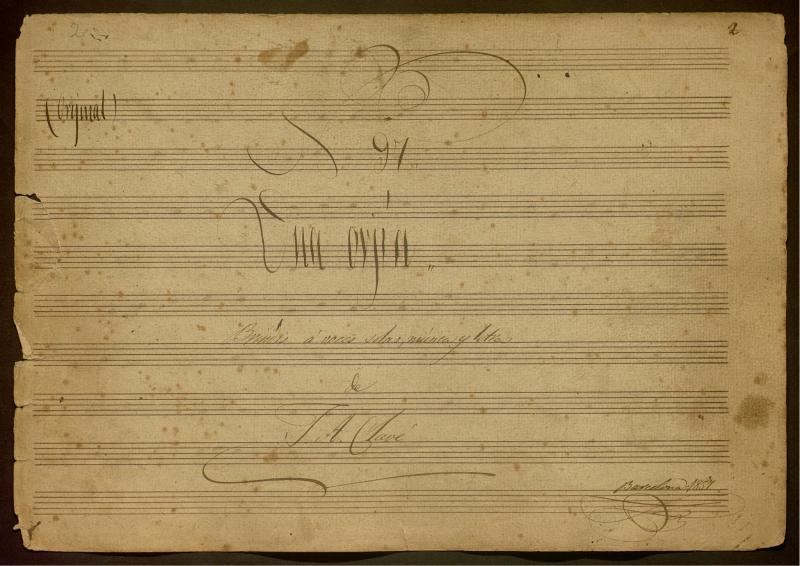 2
(Orijinal)
N 97„
Una orjia„
Brindis á voces solas, música y letra
de
J. A. Clavé
Barcelona 1857